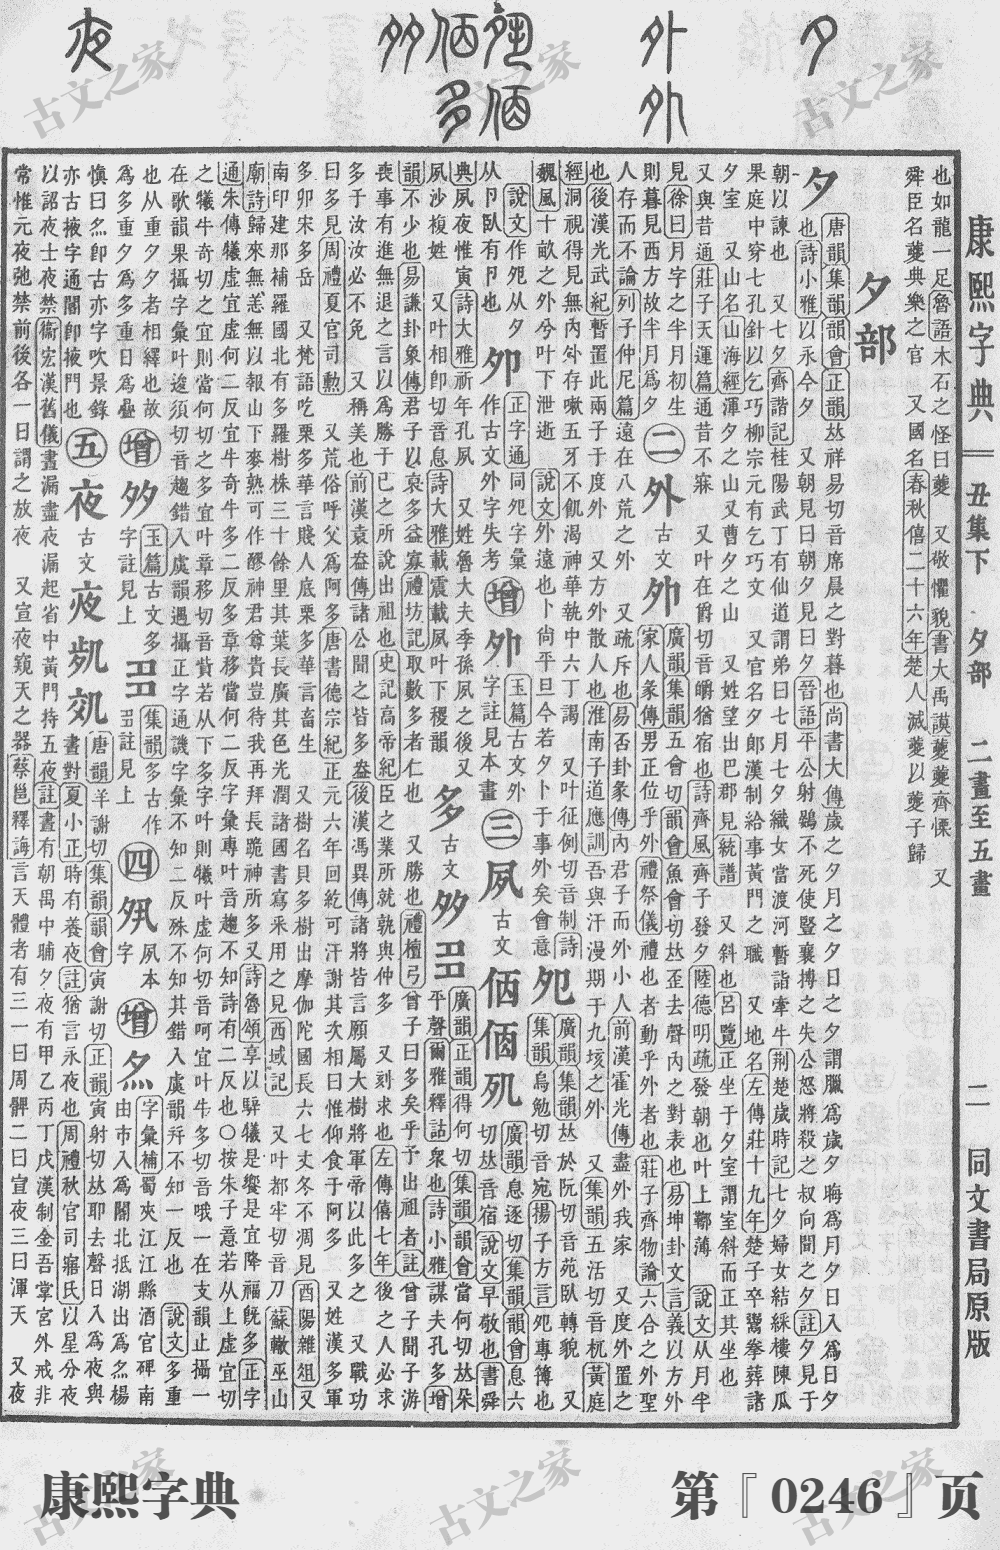 康熙字典
丑集下
夕部
二畫至五畫
二
同文書局原版
也如龍一足魯語木石之怪曰夔 又敬懼貌書大禹謨夔夔齊慄 又
舜臣名夔典樂之官 又國名春秋僖二十六年楚人滅夔以夔子歸
夕部
夕
唐韻集韻韻會正韻𠀤祥易切音席晨之對暮也尚書大傳歲之夕月之夕日之夕謂臘爲歲夕晦爲月夕日入爲日夕
也詩小雅以永今夕 又朝見曰朝夕見曰夕晉語平公射鴳不死使豎襄搏之失公怒將殺之叔向聞之夕註夕見于
朝以諫也 又七夕齊諧記桂陽武丁有仙道謂弟曰七月七夕織女當渡河暫詣牽牛荆楚歲時記七夕婦女結綵樓陳瓜
果庭中穿七孔針以乞巧柳宗元有乞巧文 又官名夕郞漢制給事黃門之職 又地名左傳莊十九年楚子卒鬻拳葬諸
夕室 又山名山海經渾夕之山又曹夕之山 又姓望出巴郡見統譜 又斜也呂覽正坐于夕室謂室斜而正其坐也
又與昔通莊子天運篇通昔不寐 又叶在爵切音皭猶宿也詩齊風齊子發夕陸德明疏發朝也叶上鞹薄 說文从月半
見徐曰月字之半月初生
則暮見西方故半月爲夕
二
外
古文
夘
廣韻集韻五會切韻會魚會切𠀤歪去聲內之對表也易坤卦文言義以方外
家人彖傳男正位乎外禮祭儀禮也者動乎外者也莊子齊物論六合之外聖
人存而不論列子仲尼篇遠在八荒之外 又疏斥也易否卦彖傳內君子而外小人前漢霍光傳盡外我家 又度外置之
也後漢光武紀暫置此兩子于度外 又方外散人也淮南子道應訓吾與汗漫期于九垓之外 又集韻五活切音杌黃庭
經洞視得見無內外存嗽五牙不飢渴神華執中六丁謁 又叶征例切音制詩
魏風十畝之外兮叶下泄逝 說文外遠也卜尚平旦今若夕卜于事外矣會意
夗
廣韻集韻𠀤於阮切音苑臥轉貌 又
集韻烏勉切音宛揚子方言夗專簿也
說文作夗从夕
从卪臥有卪也
夘
正字通同夗字彙
作古文外字失考
增
外
玉篇古文外
字註見本畫
三
夙
古文
廣韻息逐切集韻韻會息六
切𠀤音宿說文早敬也書舜
典夙夜惟寅詩大雅祈年孔夙 又姓魯大夫季孫夙之後又
夙沙複姓 又叶相卽切音息詩大雅載震載夙叶下稷韻
多
古文
廣韻正韻得何切集韻韻會當何切𠀤朵
平聲爾雅釋詁衆也詩小雅謀夫孔多增
韻不少也易謙卦象傳君子以裒多益寡禮坊記取數多者仁也 又勝也禮檀弓曾子曰多矣乎予出祖者註曾子聞子游
喪事有進無退之言以爲勝于己之所說出祖也史記高帝紀臣之業所就孰與仲多 又刻求也左傳僖七年後之人必求
多于汝汝必不免 又稱美也前漢袁盎傳諸公聞之皆多盎後漢馮異傳諸將皆言願屬大樹將軍帝以此多之 又戰功
曰多見周禮夏官司勳 又荒俗呼父爲阿多唐書德宗紀正元六年回紇可汗謝其次相曰惟仰食于阿多 又姓漢多軍
多卯宋多岳 又梵語吃栗多華言賤人底栗多華言畜生 又樹名貝多樹出摩伽陀國長六七丈冬不凋見酉陽雜俎又
南印建那補羅國北有多羅樹株三十餘里其葉長廣其色光潤諸國書寫采用之見西域記 又叶都牢切音刀蘇轍巫山
廟詩歸來無恙無以報山下麥熟可作醪神君尊貴豈待我再拜長跪神所多又詩魯頌享以騂犧是饗是宜降福旣多正字
通朱傳犧虛宜虛何二反宜牛奇牛多二反多章移當何二反字彙專叶音趨不知詩有二反也○按朱子意若从上虛宜切
之犧牛奇切之宜則當何切之多宜叶章移切音貲若从下多字叶則犧叶虛何切音呵宜叶牛多切音哦一在支韻止攝一
在歌韻果攝字彙叶逡須切音趨錯入虞韻遇攝正字通譏字彙不知二反殊不知其錯入虞韻𠀤不知一反也 說文多重
也从重夕夕者相繹也故
爲多重夕爲多重日爲疊
增
夛
玉篇古文多
字註見上
集韻多古作
註見上
四
夙
夙本
字
增
字彙補蜀夾江江縣酒官碑南
由市入爲閣北抵湖出爲楊
懊曰卽古亦字吹景錄
亦古掖字通闇卽掖門也
五
夜
古文
唐韻羊謝切集韻韻會寅謝切正韻寅射切𠀤耶去聲日入爲夜與
晝對夏小正時有養夜註猶言永夜也周禮秋官司寤氏以星分夜
以詔夜士夜禁衞宏漢舊儀晝漏盡夜漏起省中黃門持五夜註晝有朝禺中晡夕夜有甲乙丙丁戊漢制金吾掌宮外戒非
常惟元夜弛禁前後各一日謂之放夜 又宣夜窺天之器蔡邕釋誨言天體者有三一曰周髀二曰宣夜三曰渾天 又夜
康熙字典
第『0246』页
古文之家